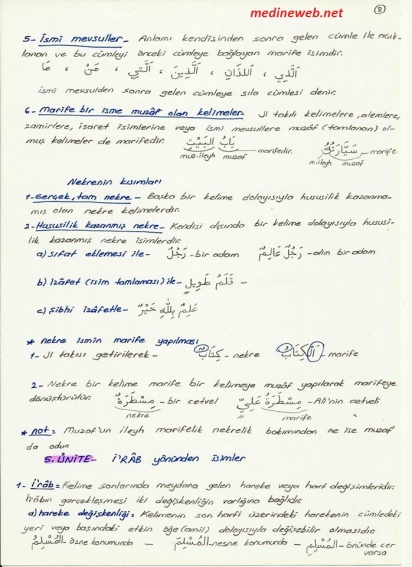 medineweb.net
8
5- İsmi mevsuller- Anlamı kendisinden sonra gelen cümle ile açık-
lanan ve bu cümleyi önceki cümleye bağlayan marife isimdir.
اَلَّذِي ، اَللَّذَانِ ، اَلَّذِينَ ، اَلَّتِي ، مَنْ ، مَا
ismi mevsulden sonra gelen cümleye sıla cümlesi denir.
6- Marife bir isme muzaf olan kelimeler- ال takılı kelimelere, alemlere,
zamirlere, işaret isimlerine veya ismi mevsullere muzaf (tamlanan) ol-
muş kelimeler de marifedir. بَابُ الْبَيْتِ marifedir. سَيَّارَتُكَ marife
muz.ileyh muzaf m.ileyh muzaf
Nekrenin kısımları
1- Gerçek, tam nekre- Başka bir kelime dolayısıyla hususilik kazanma-
mış olan nekre kelimelerdir.
2- Hususilik kazanmış nekre- Kendisi dışında bir kelime dolayısıyla hususi-
lik kazanmış nekre isimlerdir.
a) sıfat eklemesi ile- رَجُلٌ -bir adam رَجُلٌ عَالِمٌ -alim bir adam
b) İzafet (isim tamlaması) ile- قَلَمُ طَوِيلٍ
c) Şibhi izafetle- عَلِمٌ بِاللهِ خَيْرٌ
* nekre ismin marife yapılması
1- ال takısı getirilerek- كِتَابٌ - nekre اَلْكِتَابُ - marife
2- Nekre bir kelime marife bir kelimeye muzaf yapılarak marifeye
dönüştürülür. مِسْطَرَةٌ -bir cetvel مِسْطَرَةُ عَلِيٍّ - Ali'nin cetveli
nekre marife
* not= Muzaf'un ileyh marifelik nekrelik bakımından ne ise muzaf
da odur.
5. ÜNİTE- İ'RÂB yönünden isimler
1- İ'râb= Kelime sonlarında meydana gelen hareke veya harf değişimleridir.
İrâbın gerçekleşmesi iki değişkenliğin varlığına bağlıdır.
a) hareke değişkenliği= Kelimenin son harfi üzerindeki harekenin cümledeki
yeri veya başındaki etkin öğe (amil) dolayısıyla değişebilir olmasıdır.
اَلْمُسْلِمُ özne konumunda - اَلْمُسْلِمَ -nesne konumunda - اَلْمُسْلِمِ -önünde cer
varsa